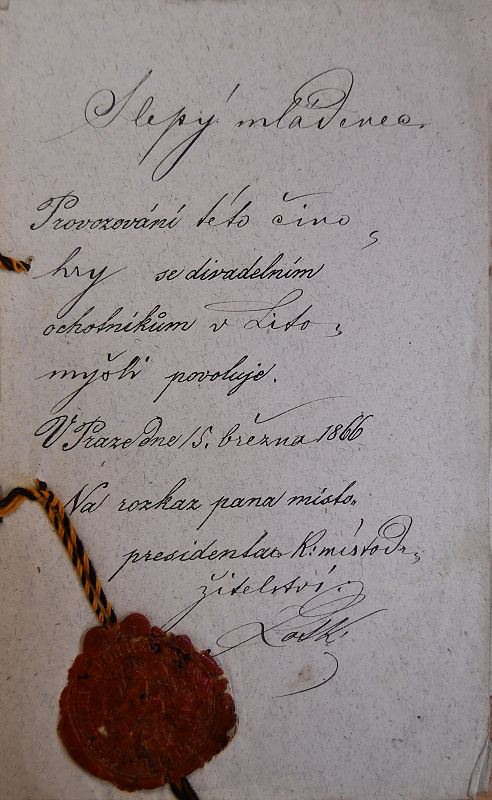 Slepý mládenec.
Provozování této čino-
hry se divadelním
ochotníkům v Lito-
myšli povoluje.
V Praze dne 15. března 1866
Na rozkaz pana místo-
presidenta K: místodr-
žitelství: